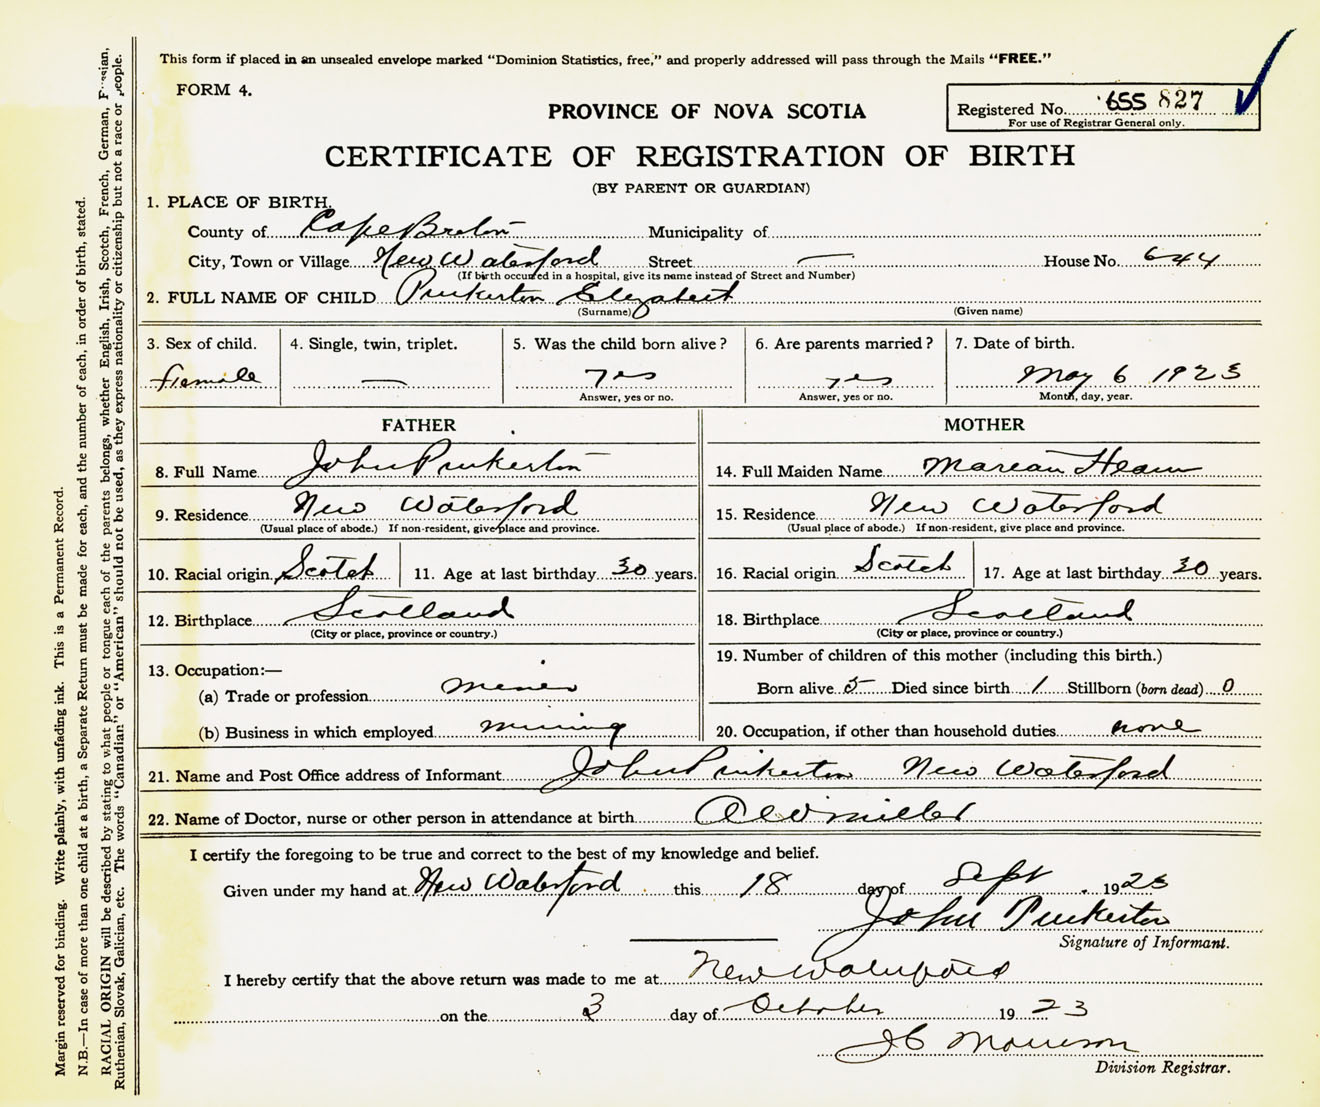 This form if placed in an unsealed envelope marked "Dominion Statistics, free," and properly addressed will pass through the Mails "FREE."
FORM 4.
Registered No. 655 827
For use of Registrar General only.
PROVINCE OF NOVA SCOTIA
CERTIFICATE OF REGISTRATION OF BIRTH
(BY PARENT OR GUARDIAN)
1. PLACE OF BIRTH.
County of Cape Breton Municipality of
City, Town or Village New Waterford Street — House No. 644
(If birth occurred in a hospital, give its name instead of Street and Number)
2. FULL NAME OF CHILD Pinkerton Elizabeth
(Surname) (Given name)
3. Sex of child. 4. Single, twin, triplet. 5. Was the child born alive? 6. Are parents married? 7. Date of birth.
Female — Yes yes May 6 1923
Answer, yes or no. Answer, yes or no. Month, day, year.
FATHER MOTHER
8. Full Name John Pinkerton 14. Full Maiden Name
9. Residence New Waterford 15. Residence New Waterford
(Usual place of abode.) If non-resident, give place and province. (Usual place of abode.) If non-resident, give place and province.
10. Racial origin Scotch 11. Age at last birthday 30 years. 16. Racial origin Scotch 17. Age at last birthday 30 years.
12. Birthplace Scotland 18. Birthplace Scotland
(City or place, province or country.) (City or place, province or country.)
13. Occupation:— 19. Number of children of this mother (including this birth.)
(a) Trade or profession miner Born alive 5 Died since birth 1 Stillborn (born dead) 0
(b) Business in which employed mining 20. Occupation, if other than household duties none
21. Name and Post Office address of Informant John Pinkerton New Waterford
22. Name of Doctor, nurse or other person in attendance at birth
I certify the foregoing to be true and correct to the best of my knowledge and belief.
Given under my hand at New Waterford this 18 day of Sept 1923
John Pinkerton
Signature of Informant.
I hereby certify that the above return was made to me at New Waterford
on the 3 day of October 1923
J C Morrison
Division Registrar.
Margin reserved for binding. Write plainly, with unfading ink. This is a Permanent Record.
N.B.—In case of more than one child at a birth, a Separate Return must be made for each, and the number of each, in order of birth, stated.
RACIAL ORIGIN will be described by stating to what people or tongue each of the parents belongs, whether English, Irish, Scotch, French, German,
Ruthenian, Slovak, Galician, etc. The words "Canadian" or "American" should not be used, as they express nationality or citizenship but not a race or people.